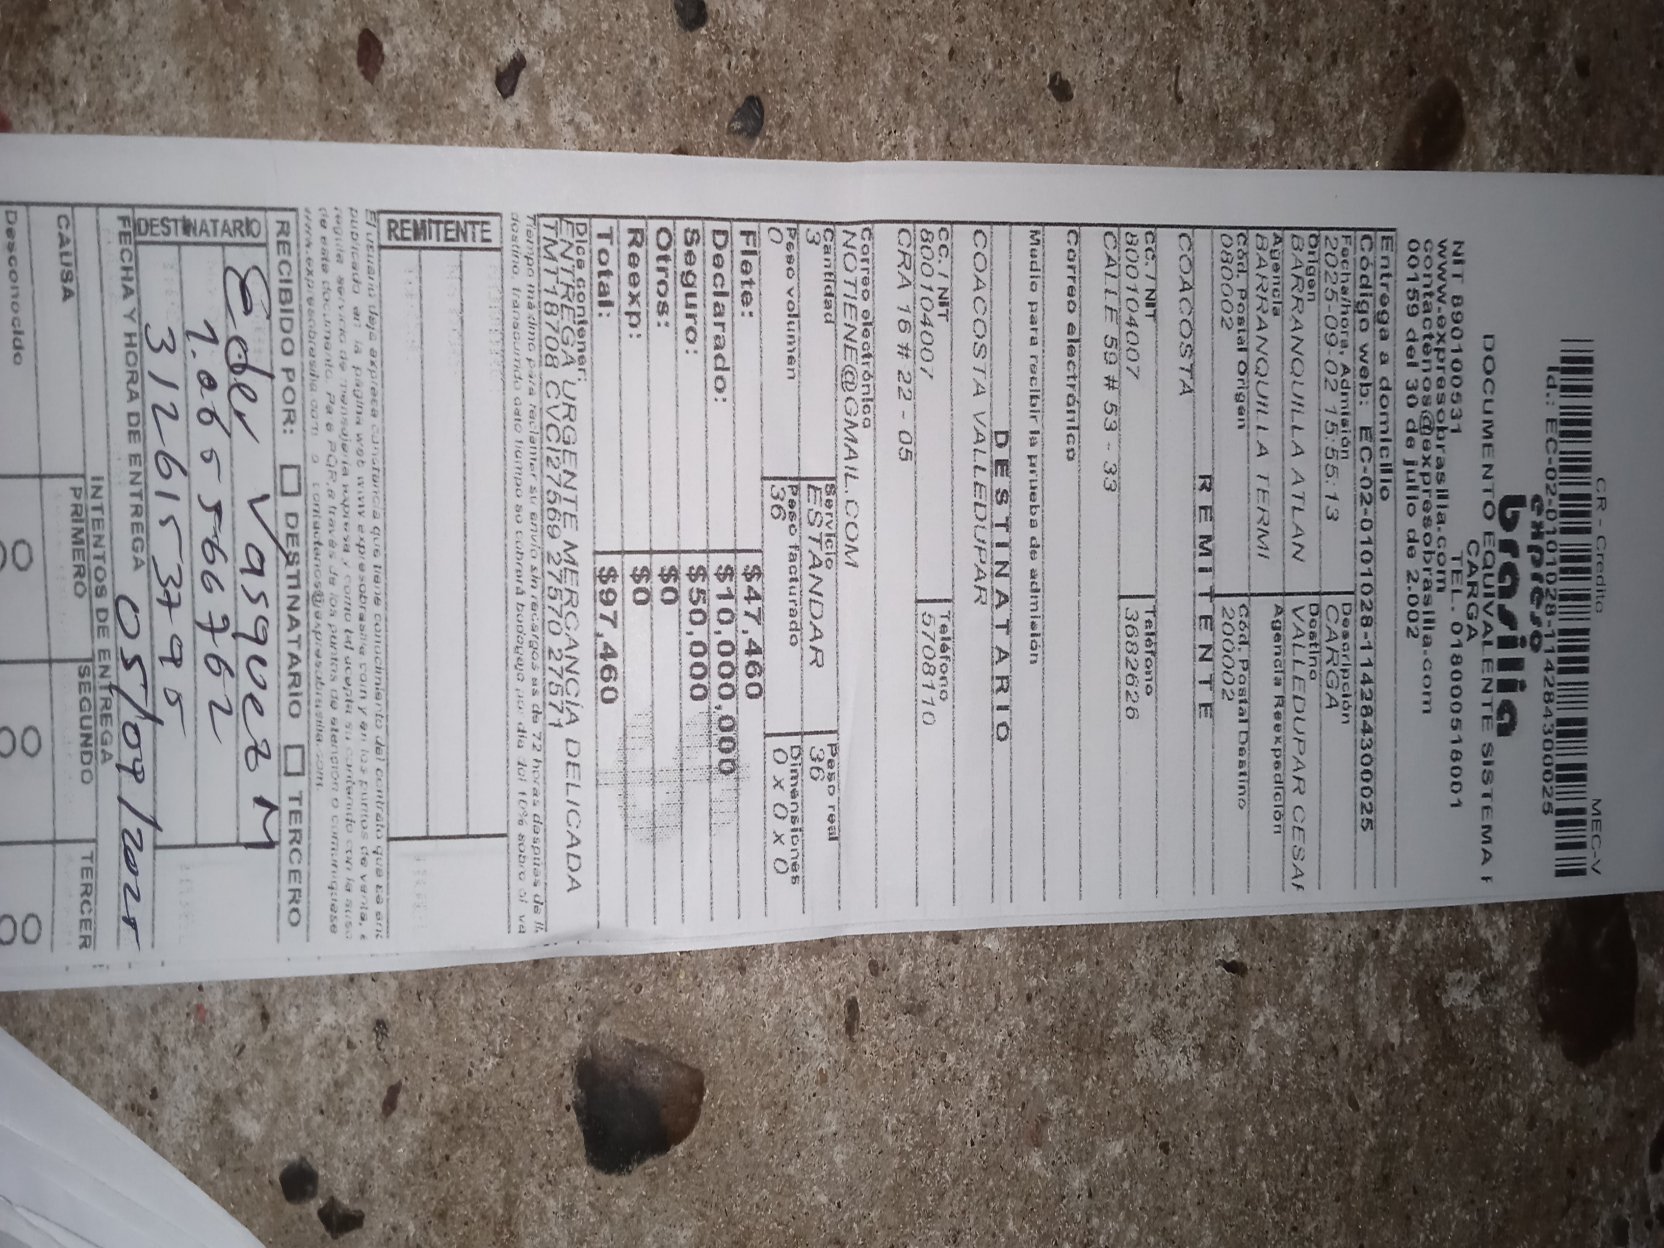 CR - Credito MEC-V
Id.: EC-02-0101028-114284300025
expreso
brasilia
DOCUMENTO EQUIVALENTE SISTEMA P
CARGA
NIT 890100531 TEL. 018000518001
www.expresobrasilia.com
contactenos@expresobrasilia.com
00159 del 30 de julio de 2.002
Entrega a domicilio
Código web: EC-02-0101028-114284300025
Fecha/hora, Admisión Descripción
2025-09-02 15:55:13 CARGA
Origen Destino
BARRANQUILLA ATLAN VALLEDUPAR CESAR
Agencia Agencia Reexpedición
BARRANQUILLA TERMI
Cód. Postal Origen Cód. Postal Destino
080002 200002
REMITENTE
COACOSTA
CC. / NIT Teléfono
800104007 3682626
CALLE 59 # 53 - 33
Correo electrónico
Medio para recibir la prueba de admisión
DESTINATARIO
COACOSTA VALLEDUPAR
CC. / NIT Teléfono
800104007 5708110
CRA 16 # 22 - 05
Correo electrónico
NOTIENE@GMAIL.COM
Cantidad Servicio Peso real
3 ESTANDAR 36
Peso volumen Peso facturado Dimensiones
0 36 0 x 0 x 0
Flete: $47,460
Declarado: $10,000,000
Seguro: $50,000
Otros: $0
Reexp: $0
Total: $97,460
Dice contener:
ENTREGA URGENTE MERCANCIA DELICADA
TM118708 CVC127569 27570 27571
Tiempo máximo para reclamar su envío sin recargos es de 72 horas después de
destino, transcurrido dicho tiempo se cobrará bodegaje por día del 10% sobre el
REMITENTE
El usuario deja expresa constancia que tiene conocimiento del contrato que se
publicado en la página web www.expresobrasilia.com y en los puntos de venta,
regula servicio de mensajería expresa y como tal acepta su contenido con la
de este documento. Para PQR a través de los puntos de atención o comuníquese
www.expresobrasilia.com o contactenos@expresobrasilia.com
RECIBIDO POR: DESTINATARIO TERCERO
DESTINATARIO
Eder Vasquez M
1.065566762
3126153795
FECHA Y HORA DE ENTREGA 05/09/2025
INTENTOS DE ENTREGA
CAUSA PRIMERO SEGUNDO TERCER
Desconocido